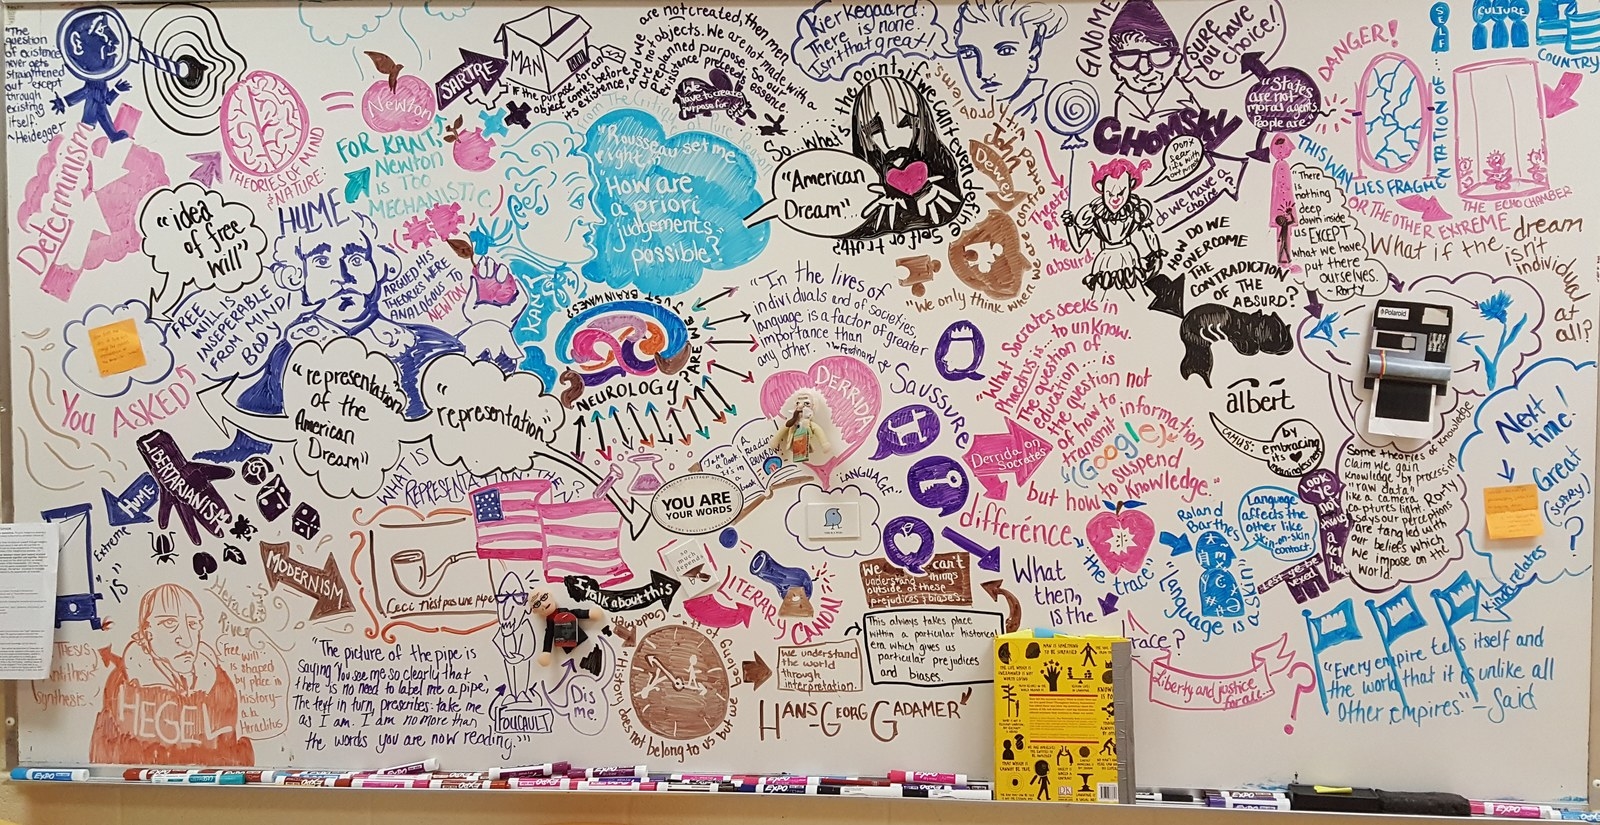 "The
question
of existence
never gets
straightened
out except
through
existing
itself."
~Heidegger
Determinism
"idea
of free
will"
THEORIES OF MIND
~NATURE:
=
Newton
FOR KANT,
Newton
is TOO
MECHANISTIC.
HUME
FREE
WILL IS
INSEPERABLE
FROM MIND/
BODY
ARGUED HIS
THEORIES WERE
ANALAGOUS
TO
NEWTON
YOU ASKED
SARTRE
MAN
IF the purpose for an
object comes before
its existence,
and we
are not created, then men
are not objects. We are not made with a
preplanned purpose. So our
existence preceeds essence.
We
have to create
purpose for us
From The Critique of Pure Reason
"Rousseau set me
right."
"How are
a priori
judgements
possible?
KANT
Kierkegaard:
There is none.
Isn't that great!
So... What's the Point if we can't even define
Self or truth?
"American
Dream"...
John
Dewey
"We only think when we are confronted
GNOME
CHOMSKY
SURE
you have
a choice!
"States
are not
moral agents,
People are."
DANGER!
SELF
CULTURE
COUNTRY
THIS WAY
LIES FRAGMENTATION OF...
OR THE OTHER EXTREME
THE ECHO CHAMBER
What if the dream
isn't
individual
at
all?
Theater
of
the
absurd.
Do we have a
choice?
HOW DO WE
OVERCOME
THE
CONTRADICTION
OF THE
ABSURD?
"There
is
nothing
deep
down inside
us EXCEPT
what we have
put there
ourselves.
~Rorty
albert
CAMUS:
by
embracing
its
meaninglessness
ARE WE JUST BRAINWAVES?
NEUROLOGY
"In the lives of
individuals and of societies,
language is a factor of greater
importance than
any other."
~Ferdinand de
Saussure
"What Socrates seeks in
Phaedrus is... to unknow.
The question of
education... is
the question not
of how to
transmit information
(Google)
but how to suspend
knowledge."
Derrida
on
Socrates
"representation
of the
American
Dream"
"representation"
WHAT IS
REPRESENTATION, THEN?
DERRIDA
Take
a look
It's in
a book
A
Reading
RAINBOW
YOU ARE
YOUR WORDS
"LANGUAGE"
différence
"the trace"
What
then,
is the
trace?
Roland
Barthes
Language
affects the
other like
skin-on-skin
contact.
"Language is a skin"
Look ye
not thru
a key
hole
Lest ye be
vexed
Some theories of knowledge
claim we gain
knowledge by processing
"raw data"
like a camera
captures light. Rorty
says our perceptions
are tangled up with
our beliefs which
we impose on the
world.
Polaroid
Next
time!
Great
(scary)
?
Kind relates
HUME
LIBERTARIANISM
Extreme
"IS"
MODERNISM
Heraclitus
River
Free
will is
shaped
by place in
history—
a la
Heraclitus
Thesis
Antithesis
Synthesis
HEGEL
Ceci n'est pas une pipe
"The picture of the pipe is
saying 'You see me so clearly that
there is no need to label me a pipe,
The text in turn, prescribes: take me
as I am. I am no more than
the words you are now reading.'"
FOUCAULT
Talk about this
so much
depends
LITERARY
CANON
Dis
me.
"History does not belong to us but we belong to it"
Gadamer
We can't
understand things
outside of these
prejudices & biases.
We understand
the world
through
interpretation.
This always takes
place within a particular historical
era which gives us
particular prejudices
and biases.
HANS-GEORG GADAMER
Liberty and justice
for all...
?
"Every empire tells itself and
the world that it is unlike all
other empires."—Said
DK
EXPO